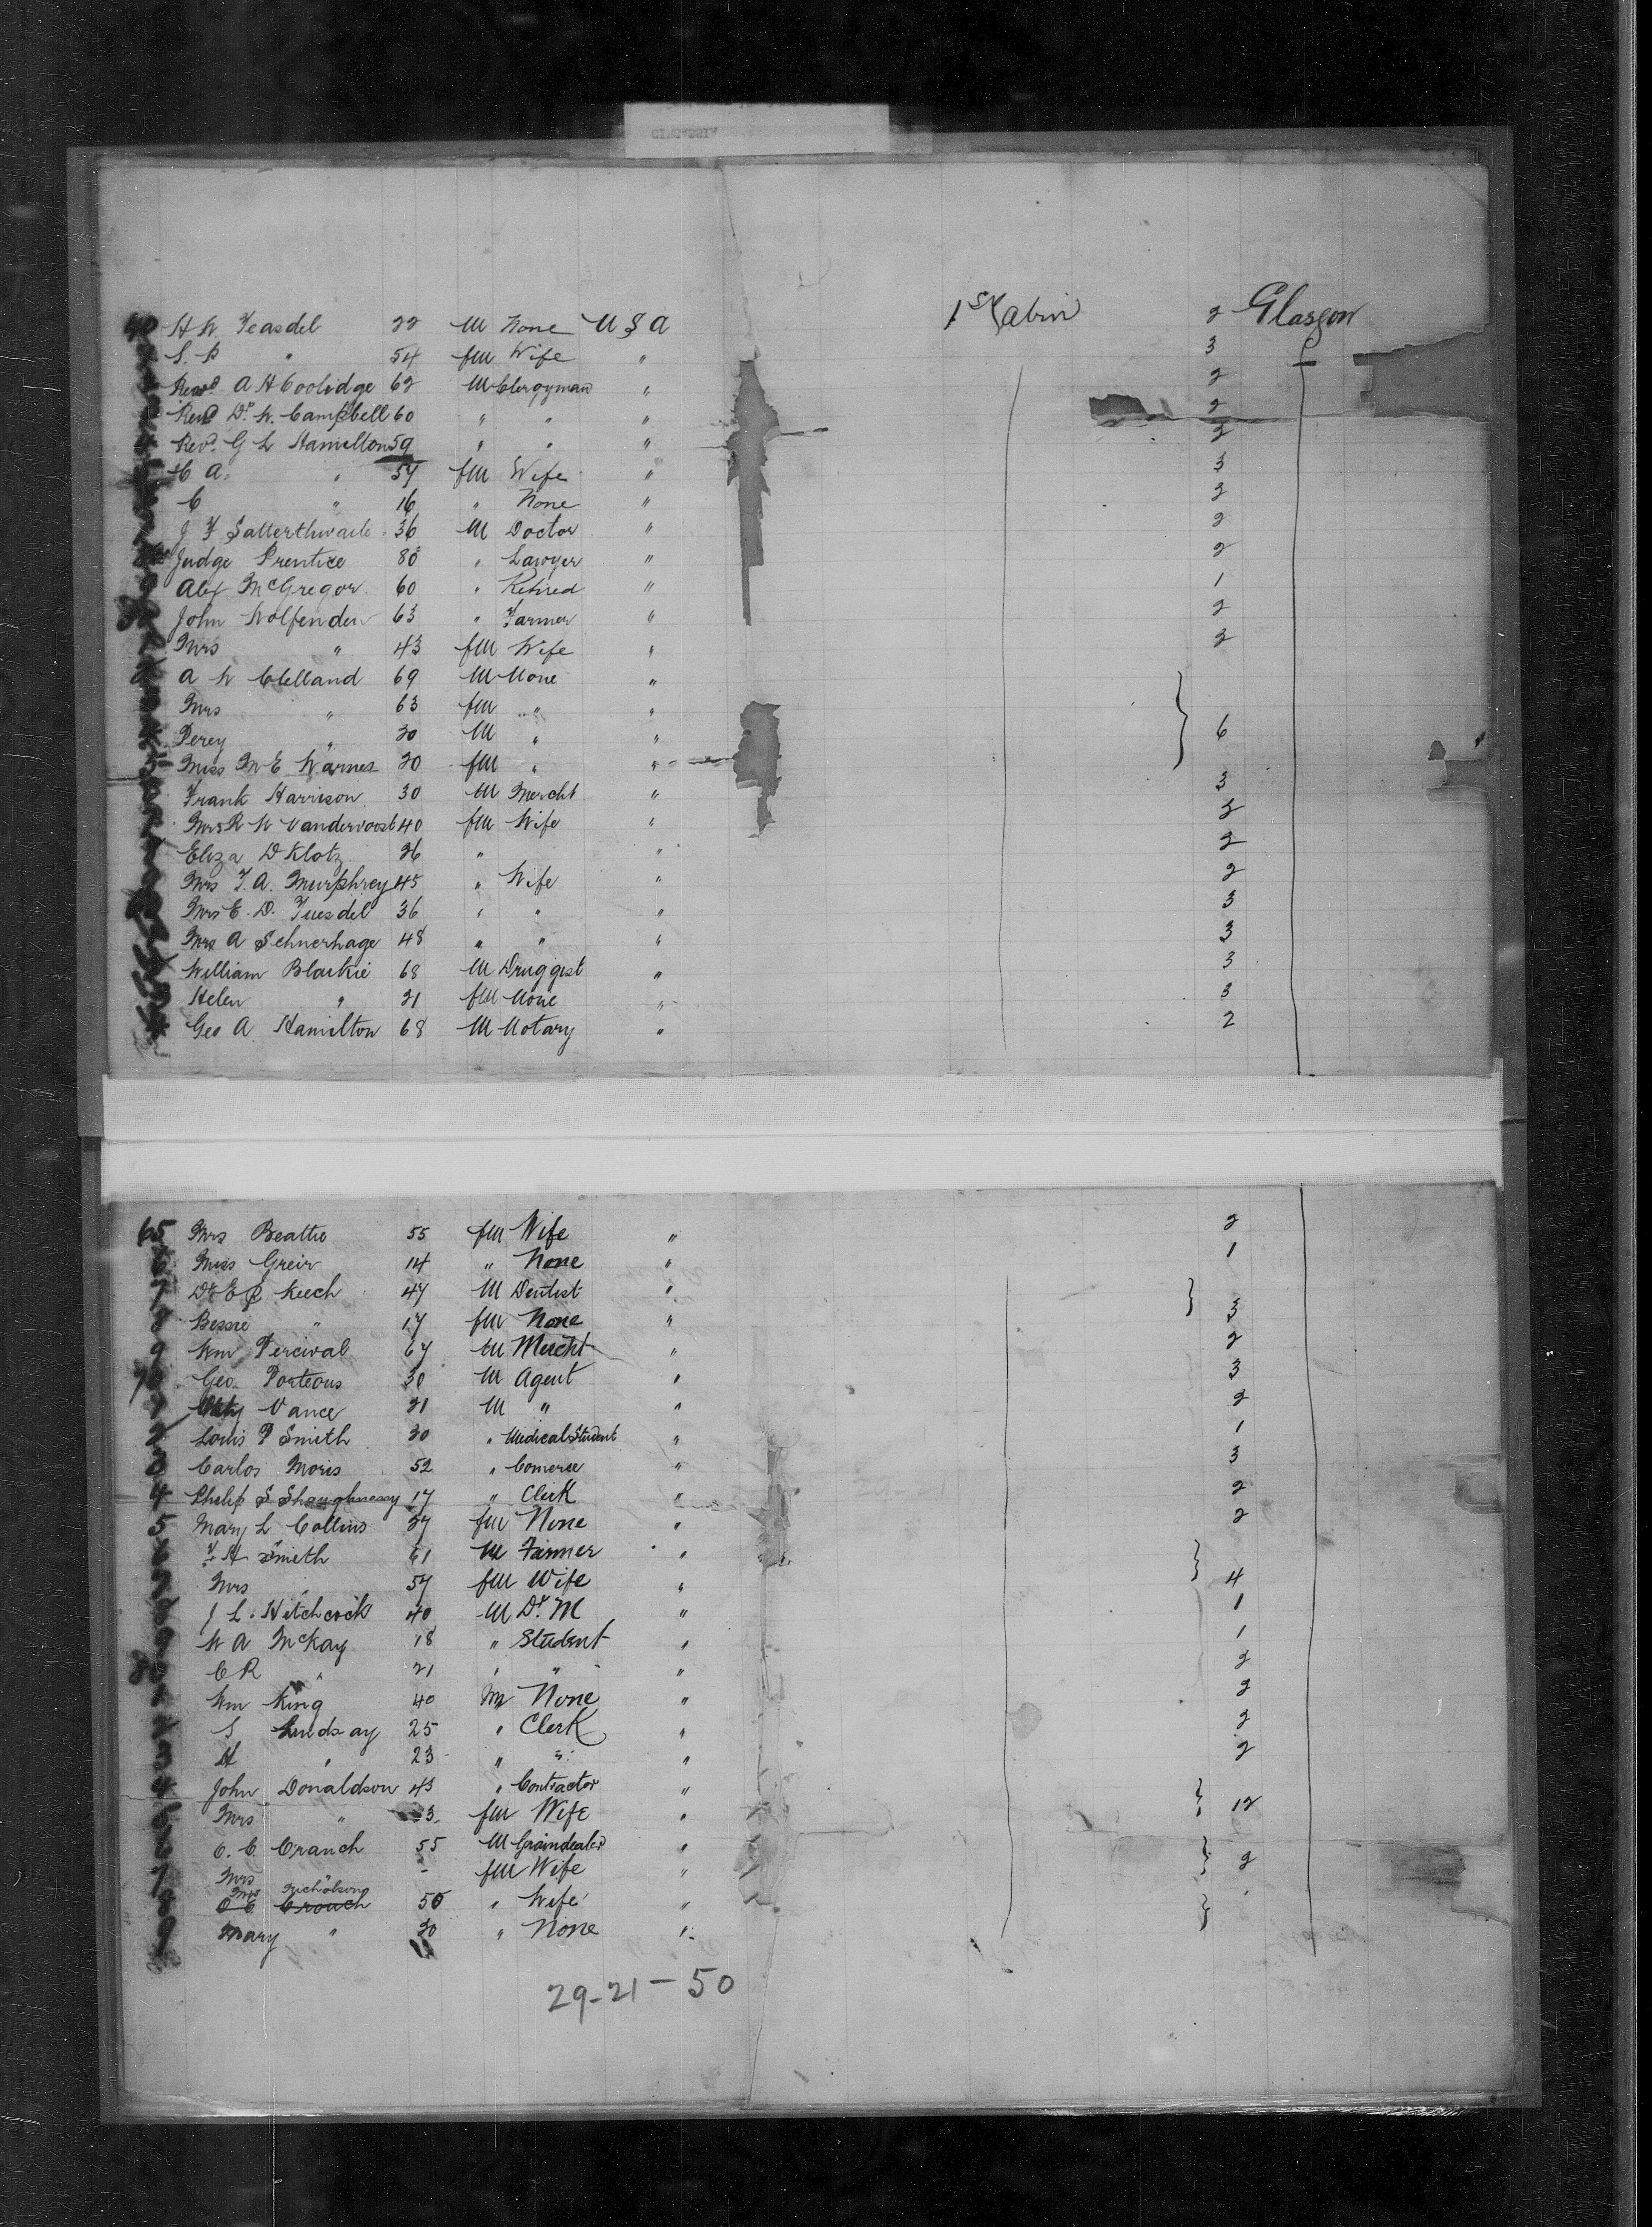 1st Cabin Glasgow
40 H W Teasdel 22 M None U S A 2
S. P " 54 fM Wife " 3
Revd A H Coolidge 62 M Clergyman " 2
Revd Dr W. Campbell 60 " " " 2
Revd G L Hamilton 59 " " " 2
H A. " 57 fM Wife " 3
C " 16 " None " 2
J F Satterthwaite 36 M Doctor " 2
Judge Prentice 80 " Lawyer " 2
9 Alex McGregor 60 " Retired " 1
50 John Wolfenden 63 " Farmer " 2
Mrs " 43 fM Wife " 2
A W Clelland 69 M None "
Mrs " 63 fM " "
Percy " 30 M " " } 6
5 Miss M E Warner 20 fM " "
Frank Harrison 30 M Mercht " 3
Mrs R W Vandervoost 40 fM Wife " 3
Eliza D Klotz 26 " " 2
Mrs F. A. Murphrey 45 " Wife " 2
Mrs E. D. Tuesdel 36 " " " 3
Mrs A Schnerhage 48 " " " 3
William Blackie 68 M Druggist " 3
Helen " 21 fM None " 3
Geo A. Hamilton 68 M Notary " 2
65 Mrs Beattie 55 fM Wife " 2
6 Miss Greir 14 " None " 1
7 Dr E P Keech 47 M Dentist "
8 Bessie " 17 fM None " } 3
9 Wm Percival 67 M Mercht " 2
70 Geo. Porteous 30 M Agent " 3
Vance 21 M " " 2
2 Louis P Smith 30 " Medical Student " 1
3 Carlos Moris 52 " Comerce " 3
4 Philip S Shaughnessy 17 " Clerk " 2
5 Mary L Collins 37 fM None " 2
F H Smith 61 M Farmer "
Mrs " 57 fM Wife " } 4
J L. Hitchcock 40 M Dr. M " 1
9 W A McKay 18 " Student " 1
8 C R " 21 " " " 2
Wm King 40 M None " 2
2 S Lindsay 25 " Clerk " 2
3 H " 23 " " " 2
4 John Donaldson 43 " Contractor "
Mrs " 3 fM Wife " } 12
6 C. C. Cranch 55 M Graindealer "
7 Mrs - fM Wife " } 2
Mrs Nicholsons
8 C C Crouch 50 " Wife "
9 Mary " 30 " None " }
29-21-50